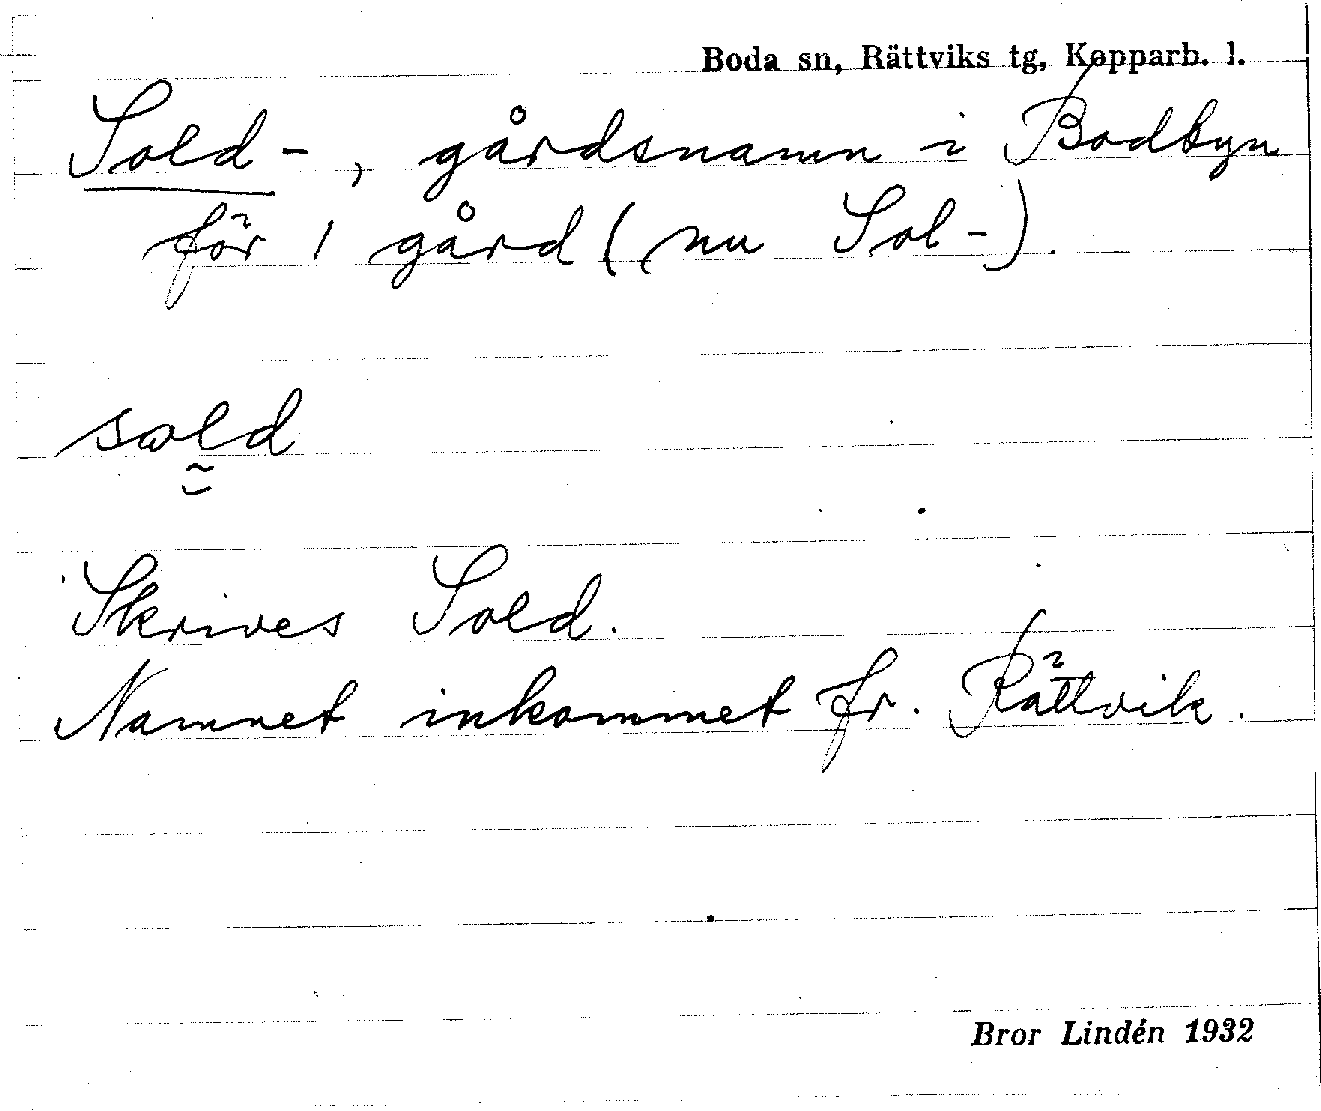 Boda sn, Rättviks tg, Kopparb. l.
Sold-, gårdsnamn i Bodbyn
för 1 gård (nu Sol-).
sωld
Skrives Sold.
Namnet inkommet fr. Rättvik.
Bror Lindén 1932